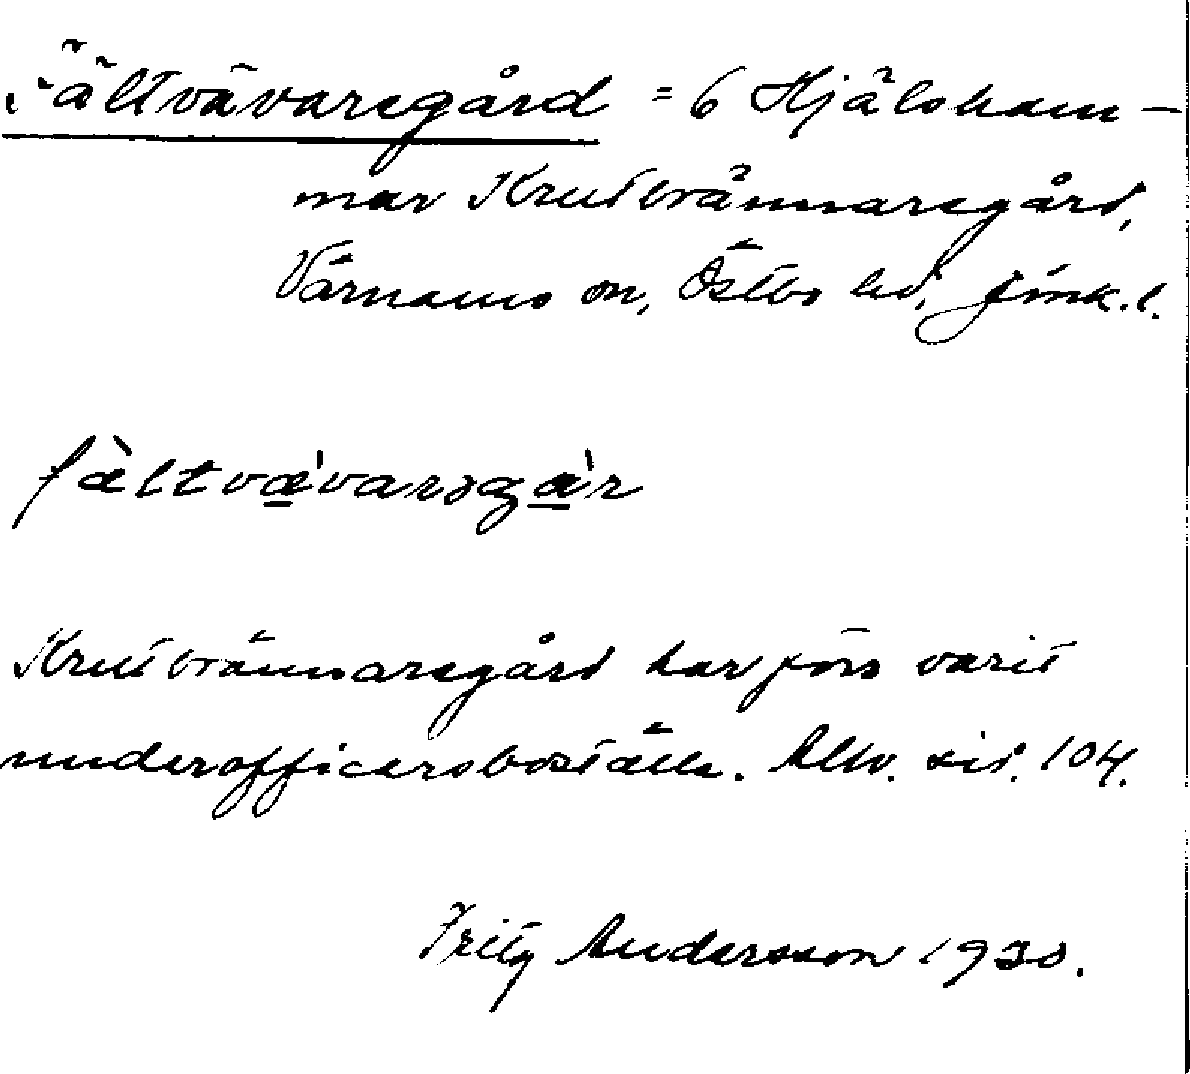 Fältvävaregård = 6 Hjälsham-
mar Krutbrännaregård,
Värnamo sn, Östbo hd, Jönk. l.
fältvævarəgár
Krutbrännaregård har förr varit
underofficersboställe. Allv. sid. 104.
Fritz Andersson 1930.